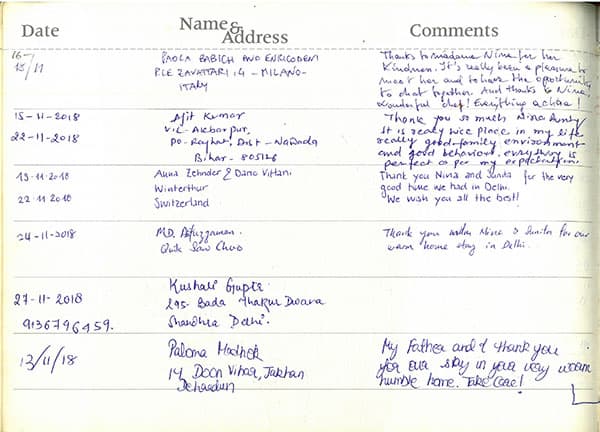 Date Name & Address Comments
16-
18/11
PAOLA BABICH AND ENRICO DENI
P.LE ZAVATTARI, 4 - MILANO-
ITALY
Thanks to madame Nina for her
Kindness. It's really been a pleasure to
meet her and to have the opportunity
to chat together. And thanks to Nina,
wonderful chef! Everything
15-11-2018
22-11-2018
Ajit Kumar
Vill- Akbarpur,
PO- Rajhat, Dist - Nawada
Bihar - 805126
Thank you so much Nina Aunty
It is really nice place in my life
really good family environment
and good behaviour, everything is
perfect as per my expectations.
19-11-2018
22 11 2018
Anna Zehnder & Dario Vittani
Winterthur
Switzerland
Thank you Nina and Sunita for the very
good time we had in Delhi.
We wish you all the best!
24-11-2018
MD.
Thank you Nina & Sunita for our
warm home stay in Delhi.
27-11-2018
9136796459.
Kushali Gupte
295- Bada Thakur Dwara
Shahdra Delhi.
13/11/18
Paloma Madhok
14, Doon Vihar, Jakhan
Dehradun
My Father and I thank you
for our stay in your very warm
humble home. Take care!